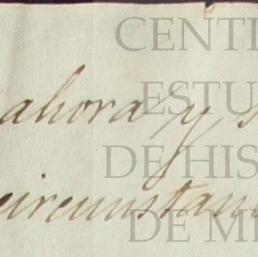 CENT
ahora y
ESTU
DE HIS
circunstan
DE M